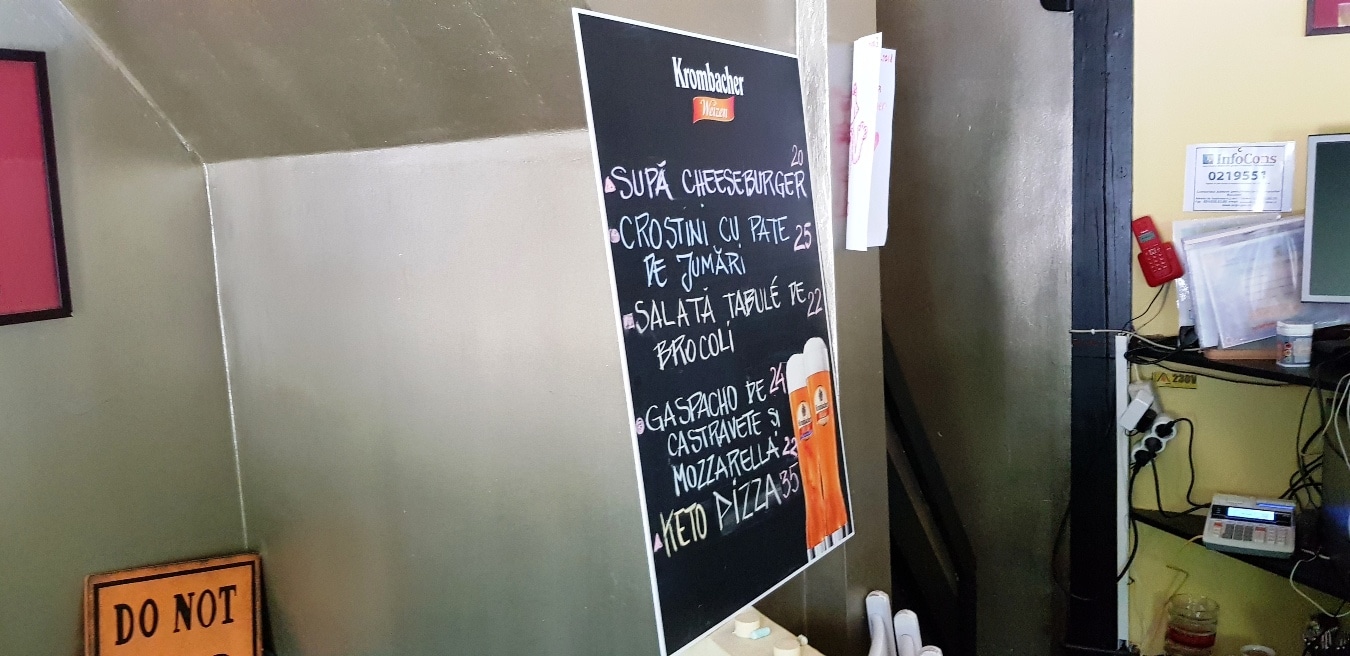 Krombacher
Weizen
20
SUPĂ CHEESEBURGER
CROSTINI CU PATE 25
DE JUMĂRI
SALATĂ TABULÉ DE 22
BROCOLI
GASPACHO DE 24
CASTRAVETE ȘI
MOZZARELLA 22
KETO PIZZA 35
DO NOT
InfoCons
0219551
230V